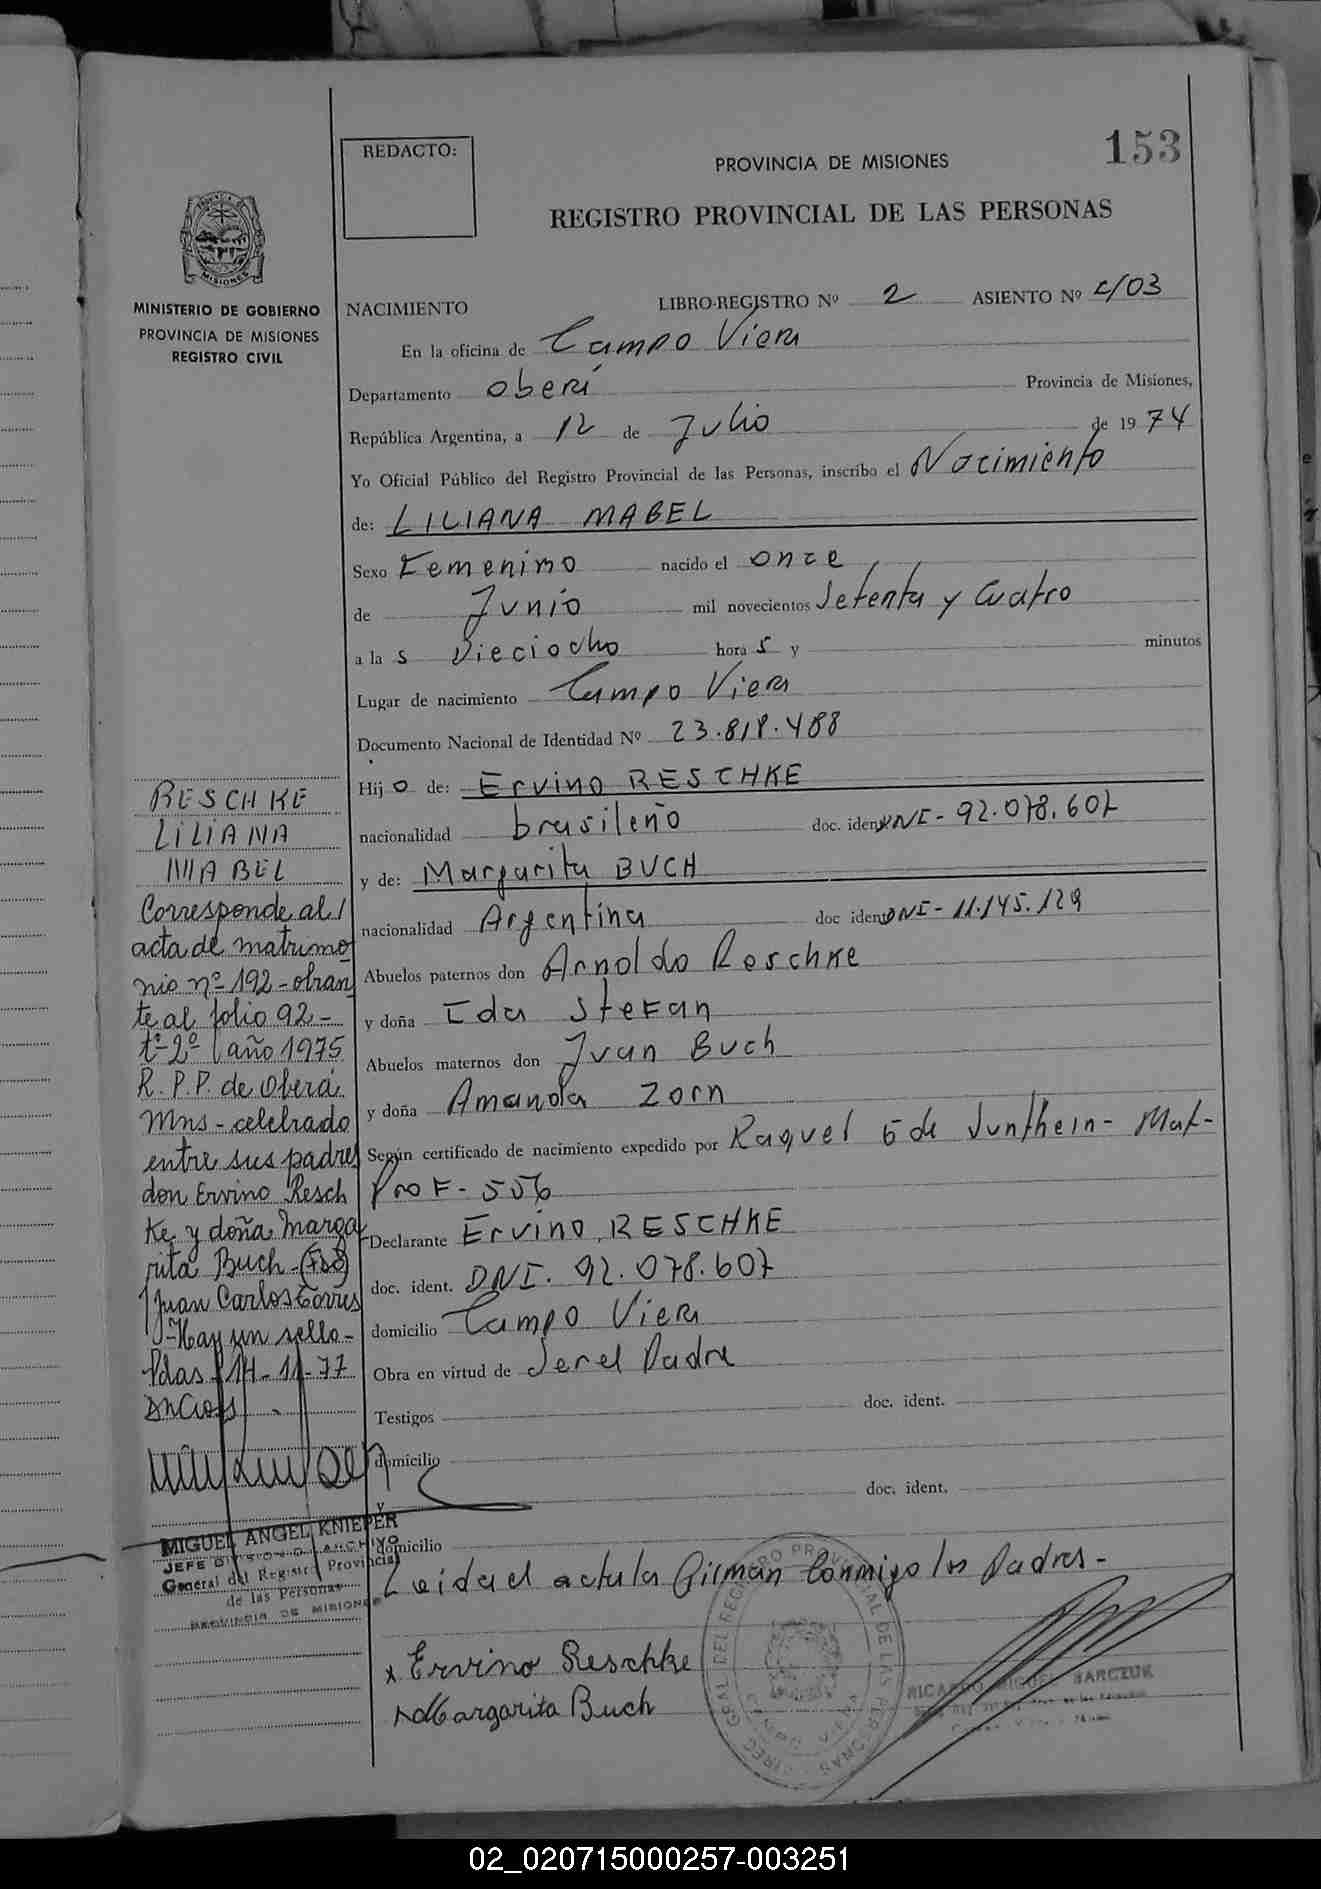 153
REDACTO:
PROVINCIA DE MISIONES
REGISTRO PROVINCIAL DE LAS PERSONAS
MISIONES
MINISTERIO DE GOBIERNO
PROVINCIA DE MISIONES
REGISTRO CIVIL
NACIMIENTO LIBRO-REGISTRO Nº 2 ASIENTO Nº c/03
En la oficina de Campo Viera
Departamento Oberá Provincia de Misiones,
República Argentina, a 12 de Julio de 1974
Yo Oficial Público del Registro Provincial de las Personas, inscribo el Nacimiento
de: LILIANA MABEL
Sexo Femenino nacido el once
de Junio mil novecientos Setenta y Cuatro
a la s Dieciocho hora s y minutos
Lugar de nacimiento Campo Viera
Documento Nacional de Identidad Nº 23.818.488
Hij o de: Ervino RESCHKE
nacionalidad brasileño doc. ident. DNI- 92.078.607
y de: Margarita BUCH
nacionalidad Argentina doc ident. DNI- 11.145.129
Abuelos paternos don Arnoldo Reschke
y doña Eda Stefan
Abuelos maternos don Juan Buch
y doña Amanda Zorn
Según certificado de nacimiento expedido por Raquel G de Junthein- Mat-
Prof- 556
Declarante Ervino RESCHKE
doc. ident. DNI. 92.078.607
domicilio Campo Viera
Obra en virtud de Ser el Padre
Testigos doc. ident.
domicilio
y doc. ident.
domicilio
Leida el acta la Firman Conmigo los Padres-
x Ervino Reschke
x Margarita Buch
RESCHKE
LILIANA
MABEL
Corresponde al
acta de matrimo
nio nº 192-obran
te al folio 92-
tº-2º año 1975
R.P.P. de Oberá
Mns-celebrado
entre sus padres
don Ervino Resch
ke y doña Marga
rita Buch-(Fdo)
Juan Carlos Torres
-Hay un sello-
Pdas-14-11-77
MIGUEL ANGEL KNIEPER
JEFE DIVISION ARCHIVO
General del Registro Provincial
de las Personas
PROVINCIA DE MISIONES
DIREC. GRAL DEL REGISTRO PROVINCIAL DE LAS PERSONAS
CAMPO VIERA
RICARDO MIGUEL BARCZUK
02_020715000257-003251